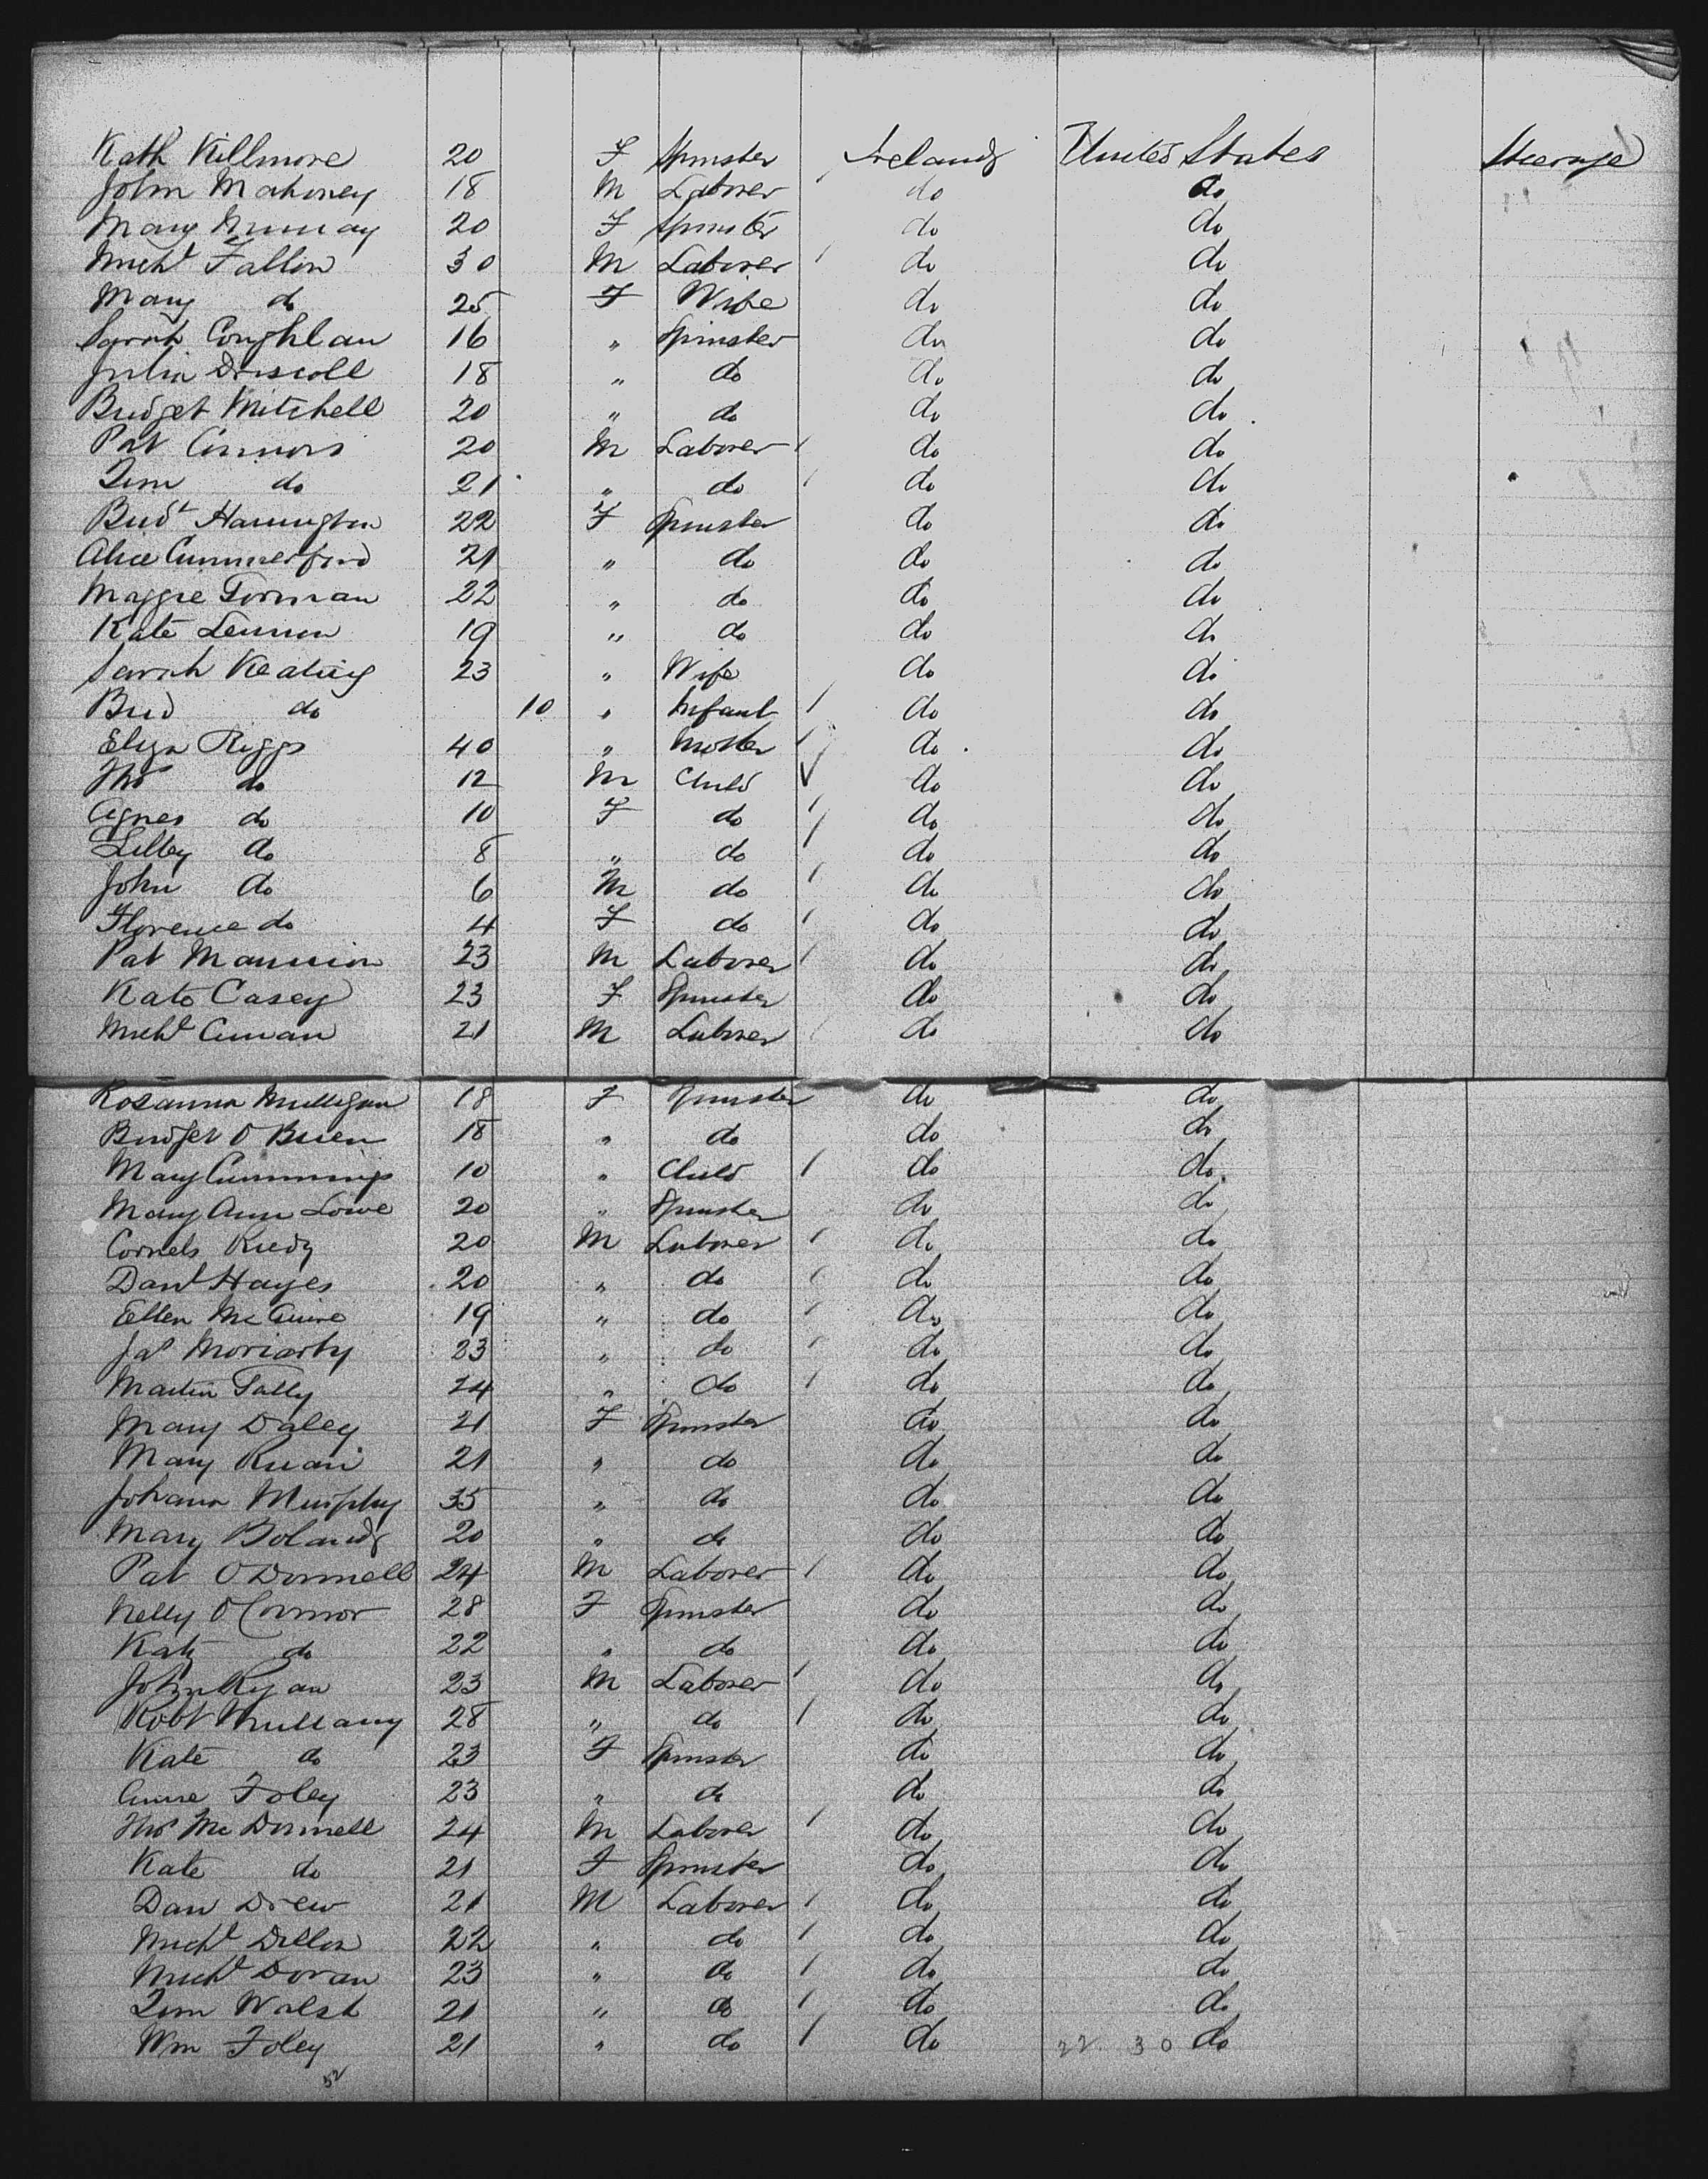 Kath Killmore 20 F Spinster Ireland United States Steerage
John Mahoney 18 M Laborer do do
Mary Murray 20 F Spinster do do
Michl Fallon 30 M Laborer do do
Mary do 25 F Wife do do
Sarah Coughlan 16 " Spinster do do
Julia Driscoll 18 " do do do
Bridget Mitchell 20 " do do do
Pat Connors 20 M Laborer do do
Tim do 21 " do do do
Bridt Harrington 22 F Spinster do do
Alice Cummerford 21 " do do do
Maggie Gorman 22 " do do do
Kate Lennon 19 " do do do
Sarah Keating 23 " Wife do do
Brid do 10 " Infant do do
Eliza Riggs 40 " Mother do do
Thos do 12 M Child do do
Agnes do 10 F do do do
Lilley do 8 " do do do
John do 6 M do do do
Florence do 4 F do do do
Pat Mannion 23 M Laborer do do
Kate Casey 23 F Spinster do do
Michl Curran 21 M Laborer do do
Rosanna Mulligan 18 F Spinster do do
Bridget O Brien 18 " do do do
Mary Cummings 10 " Child do do
Mary Ann Lowe 20 " Spinster do do
Cornels Riedy 20 M Laborer do do
Danl Hayes 20 " do do do
Ellen McGuire 19 " do do do
Jas Moriarty 23 " do do do
Martin Tally 24 " do do do
Mary Daley 21 F Spinster do do
Mary Ruan 21 " do do do
Johana Murphy 35 " do do do
Mary Boland 20 " do do do
Pat O Donnell 24 M Laborer do do
Nelly O Connor 28 F Spinster do do
Kate do 22 " do do do
John Ryan 23 M Laborer do do
Robt Mullany 28 " do do do
Kate do 23 F Spinster do do
Anne Foley 23 " do do do
Thos McDonnell 24 M Laborer do do
Kate do 21 F Spinster do do
Dan Drew 21 M Laborer do do
Michl Dillon 22 " do do do
Michl Doran 23 " do do do
Tim Walsh 21 " do do do
Wm Foley 21 " do do 22 30 do
52